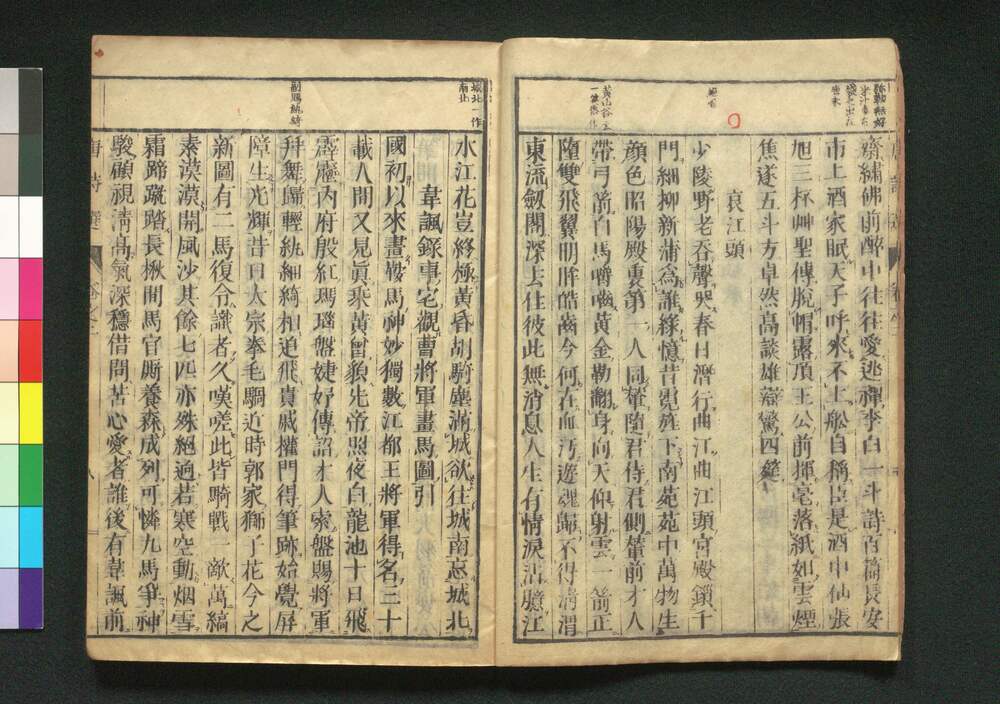 齋繡佛前醉中往往愛逃禪李白一斗詩百篇長安
市上酒家眠天子呼來不上船自稱臣是酒中仙張
旭三杯艸聖傳脫帽露頂王公前揮毫落紙如雲煙
焦遂五斗方卓然高談雄辯驚四筵
哀江頭
少陵野老吞聲哭春日潛行曲江曲江頭宮殿鎖千
門細柳新蒲為誰綠憶昔霓旌下南苑苑中萬物生
顏色昭陽殿裏第一人同輦隨君侍君側輦前才人
帶弓箭白馬嚼嚙黃金勒翻身向天仰射雲一箭正
墮雙飛翼明眸皓齒今何在血汚遊魂歸不得清渭
東流劔閣深去住彼此無消息人生有情淚沾臆江
城北一作
南北
水江花豈終極黃昏胡騎塵滿城欲往城南忘城北
韋諷錄事宅觀曹將軍畫馬圖引
國初以來畫鞍馬神妙獨數江都王將軍得名三十
載人間又見眞乘黃曾貌先帝照夜白龍池十日飛
霹靂內府殷紅瑪瑙盤婕妤傳詔才人索盤賜將軍
拜舞歸輕紈細綺相追飛貴戚權門得筆跡始覺屏
障生光輝昔日太宗拳毛騧近時郭家獅子花今之
新圖有二馬復令識者久嘆嗟此皆騎戰一敵萬縞
素漠漠開風沙其餘七匹亦殊絕逈若寒空動烟雪
霜蹄蹴踏長楸間馬官廝養森成列可憐九馬爭神
駿顧視清高氣深穩借問苦心愛者誰後有韋諷前
唐詩選
八